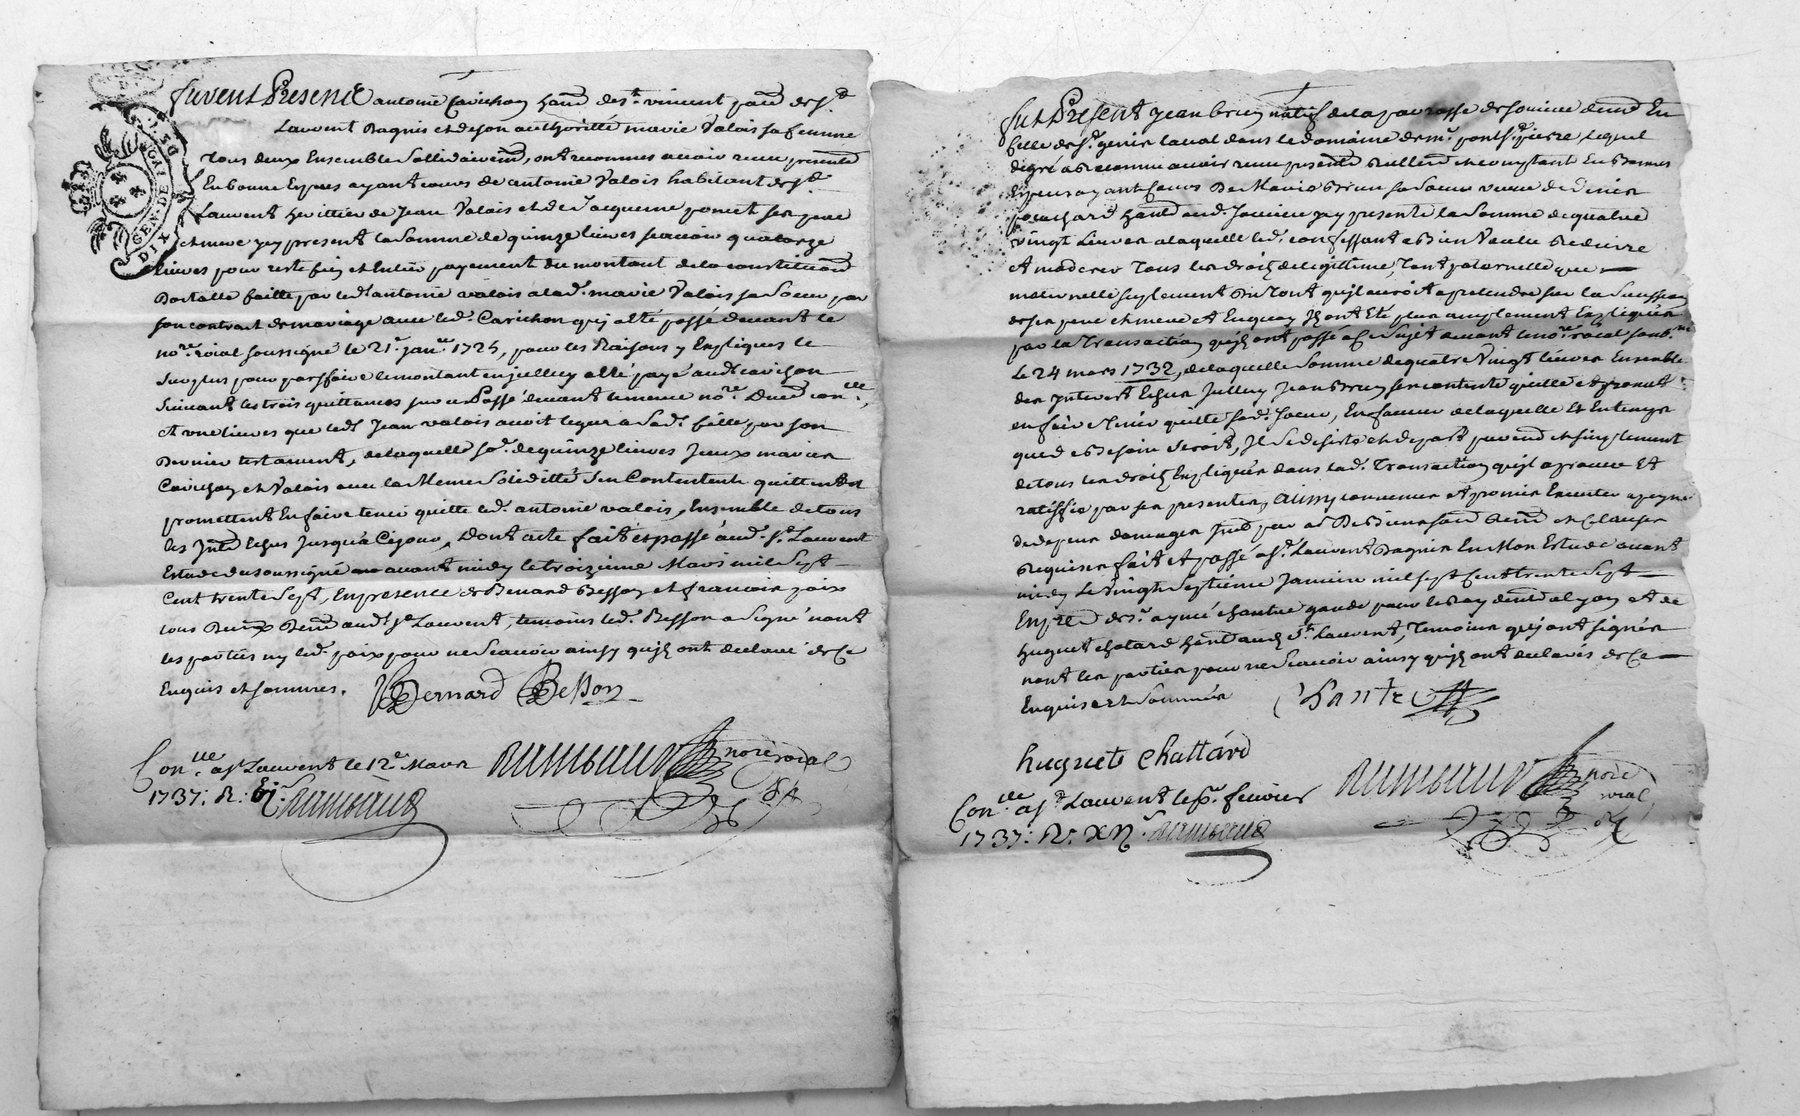 GEN. DE LYON
DIX DEN.
furent Presents antoine Carichon hant de st. vincent parr. de st.
Laurent Dagnis et de son authoritté marie Valois sa femme
Tous deux Ensemble Sollidairemt, ont reconnus avoir reçu presentmt
En bonne Espees ayant cours de antoine Valois habitant de st.
Laurent herittier de Jean Valois et de Jacqueme poncet ses pere
et mere icy present la somme de quinze livres scavoir quatorze
livres pour reste fin et Entier payement du montant de la constitution
Dottalle faitte par led. antoine valois a lad. marie Valois sa Soeur par
son contrat de mariage avec led. Carichon qui a Eté passé devant le
nore. roial soussigné le 21e. janr. 1725, pour les Raisons y Expliquées le
surplus pour parffaire le montant en jcelluy a Eté payé aud. carichon
Suivant les trois quittances sur ce Passé devant le meme nore.
Et une livres que led. Jean valois avoit leguré a Sad. fille par son
Dernier testament, de laquelle se. de quinze livres Jceux mariés
Carichon et Valois avec la Meme Solidditté s'en Contentent quittent et
promettent En faire tenir quitte led. antoine valois, Ensemble de tous
les Jnts. Echus Jusqu'a Cejour, Dont acte fait et passé aud. st. Laurent
Estude du soussigné avant midy le troizieme Mars mil Sept
Cent trente Sept, En presence de Benard Besson et francois paix
tous Deux Demts. aud. st. Laurent, temoins led. Besson a Signé nont
les parties ny led. paix pour ne Scavoir ainsy qu'jls ont declaré de Ce
Enquis et sommes.
Bernard Besson
Conlle. a st. Laurent le 12e. Mars
1737: R:
nore roial
fut Present Jean brun natif de la parroisse de soucieu demt. En
celle de st. genis laval dans le domaine de mr. pont st. pierre, lequel
de gré a Reconnu avoir reçu presentmt. Reellemt. et comptant En bonnes
Especes ayant Cours De Marie brun sa Soeur veuve de
pouchard hant. aud. Soucieu icy presente la Somme de quatre
vingt Livres a laquelle led. confessant a Bien Voulu Reduire
Et moderer Tous les droits de legittime, Tant paternelle que
maternelle suplement Dic. Tout qu'jl auroit a pretendre sur la Succession
de ses pere et mere Et En quoy jls ont Eté plus amplement Expliqués
par la Transaction qu'jls ont passé a Ce Sujet devant le nore. roial sousné
Le 24 mars 1732, de laquelle Somme de quatre Vingt livres Ensemble
des jnterest Echus Jcelluy Jean Brun s'en contente quitte et promet
en faire tenir quitte sad. soeur, En faveur de laquelle Et En temps
que d Besoin Seroit, Jl Se desiste et depart purement et simplement
de tous les droits Expliqués dans lad. Transaction qu'jl aprouve Et
ratiffie par ses presentes, Ainsy convenu Et promis Executer a peyne
De depens domages
Requises fait et passé a st. Laurent Dagnis En Mon Estude avant
midy le Vingt Septieme Janvier mil sept Cent trente Sept
En pnce. de sr. aymé chantre garde pour le Roy demt. a lyon et de
huguet chatard hant. aud. st. Laurent, Temoins qui ont signés
nont les parties pour ne Scavoir ainsy qu'jls ont declarés de Ce
Enquises et Sommés
Chantre
huguet Chattard
Conlle. a st. Laurent le pr. fevrier
1737: R.
nore
roial